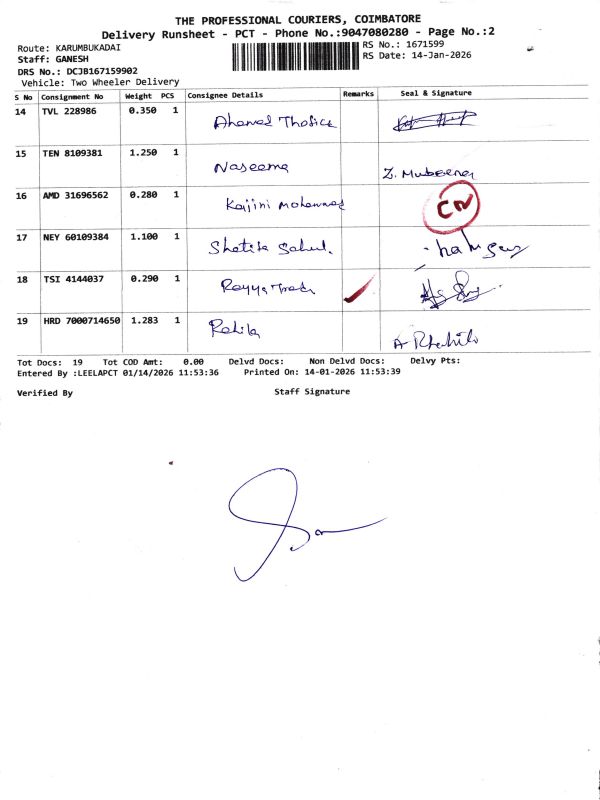 THE PROFESSIONAL COURIERS, COIMBATORE
Delivery Runsheet - PCT - Phone No.:9047080280 - Page No.:2
Route: KARUMBUKADAI RS No.: 1671599
Staff: GANESH RS Date: 14-Jan-2026
DRS No.: DCJB167159902
Vehicle: Two Wheeler Delivery
S No Consignment No Weight PCS Consignee Details Remarks Seal & Signature
14 TVL 228986 0.350 1 Ahamed
15 TEN 8109381 1.250 1 Naseema Z. Mubeena
16 AMD 31696562 0.280 1 CN
17 NEY 60109384 1.100 1
18 TSI 4144037 0.290 1
19 HRD 7000714650 1.283 1 Rahila A
Tot Docs: 19 Tot COD Amt: 0.00 Delvd Docs: Non Delvd Docs: Delvy Pts:
Entered By :LEELAPCT 01/14/2026 11:53:36 Printed On: 14-01-2026 11:53:39
Verified By Staff Signature